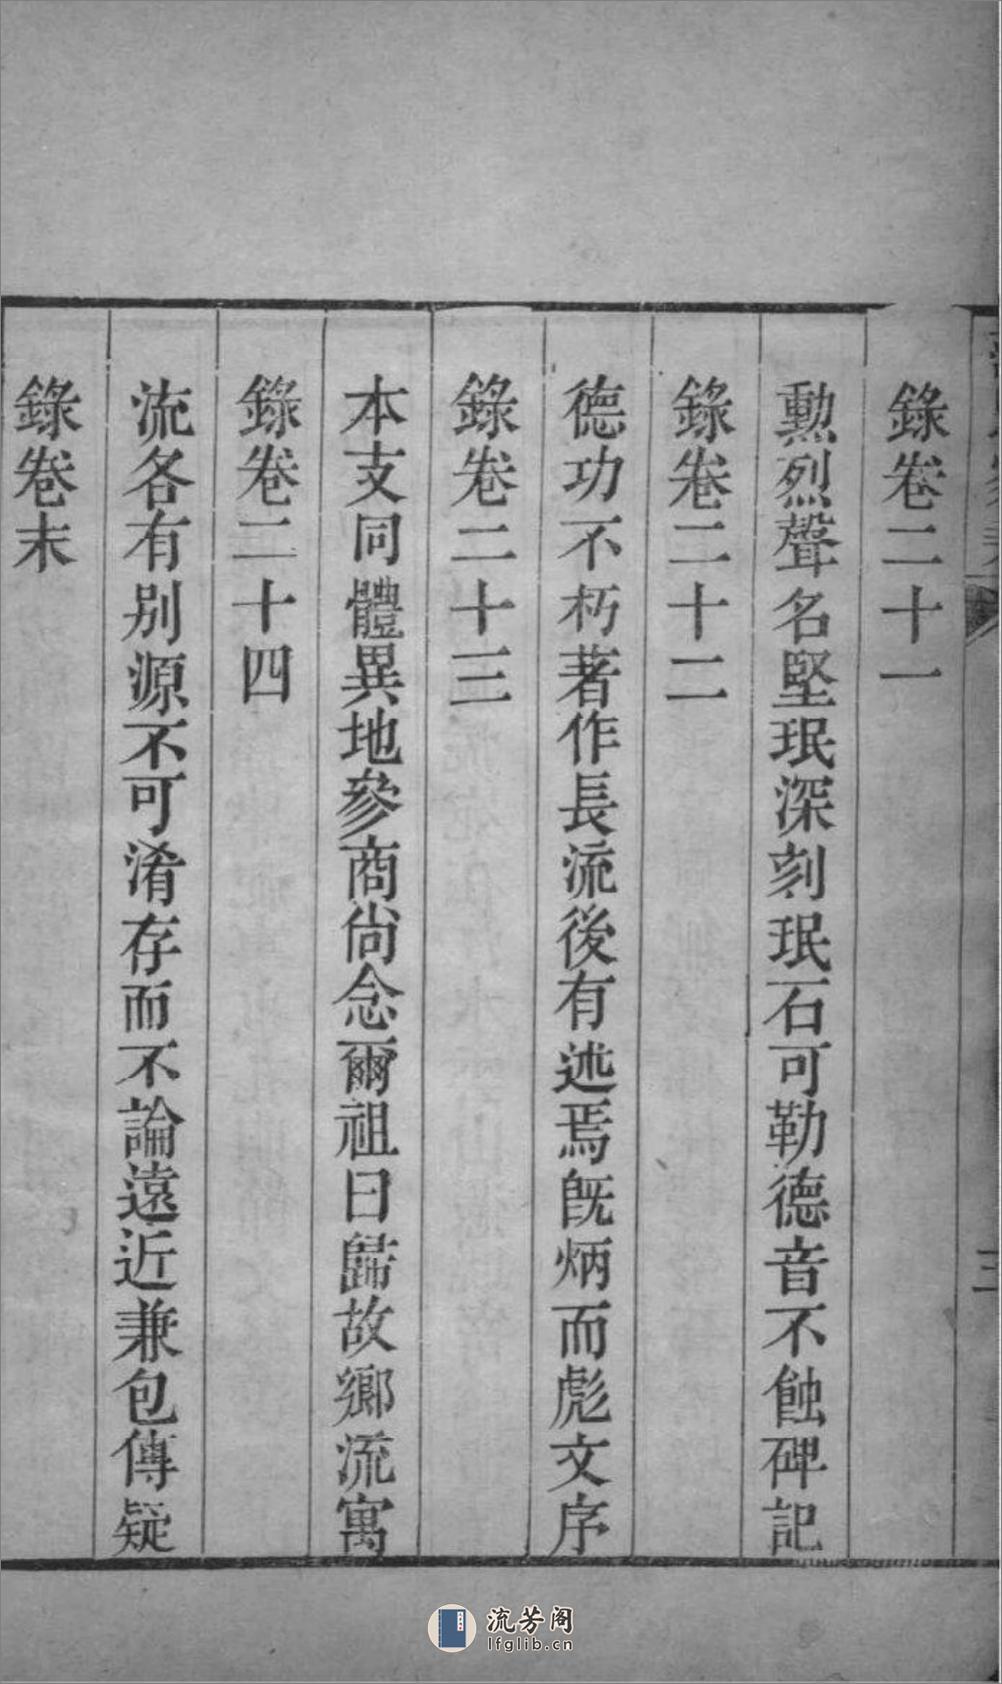 錄卷二十一
勳烈聲名堅珉深刻珉石可勒德音不蝕碑記
錄卷二十二
德功不朽著作長流後有述焉旣炳而彪文序
錄卷二十三
本支同體異地參商尙念爾祖曰歸故鄉流寓
錄卷二十四
流各有别源不可淆存而不論遠近兼包傳疑
錄卷末
三
流芳阁
lfglib.cn